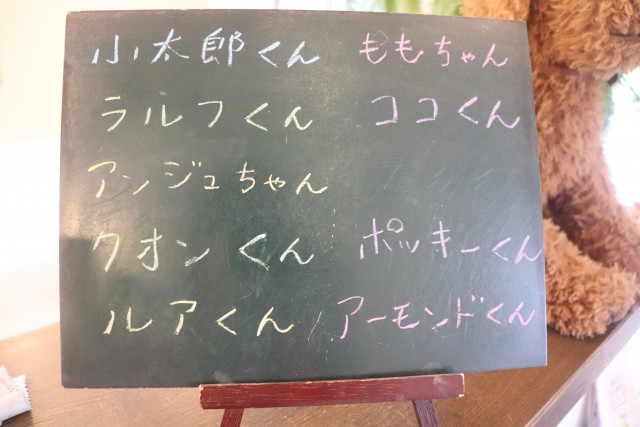 小太郎くん ももちゃん
ラルフくん ココくん
アンジュちゃん
クオンくん ポッキーくん
ルアくん アーモンドくん